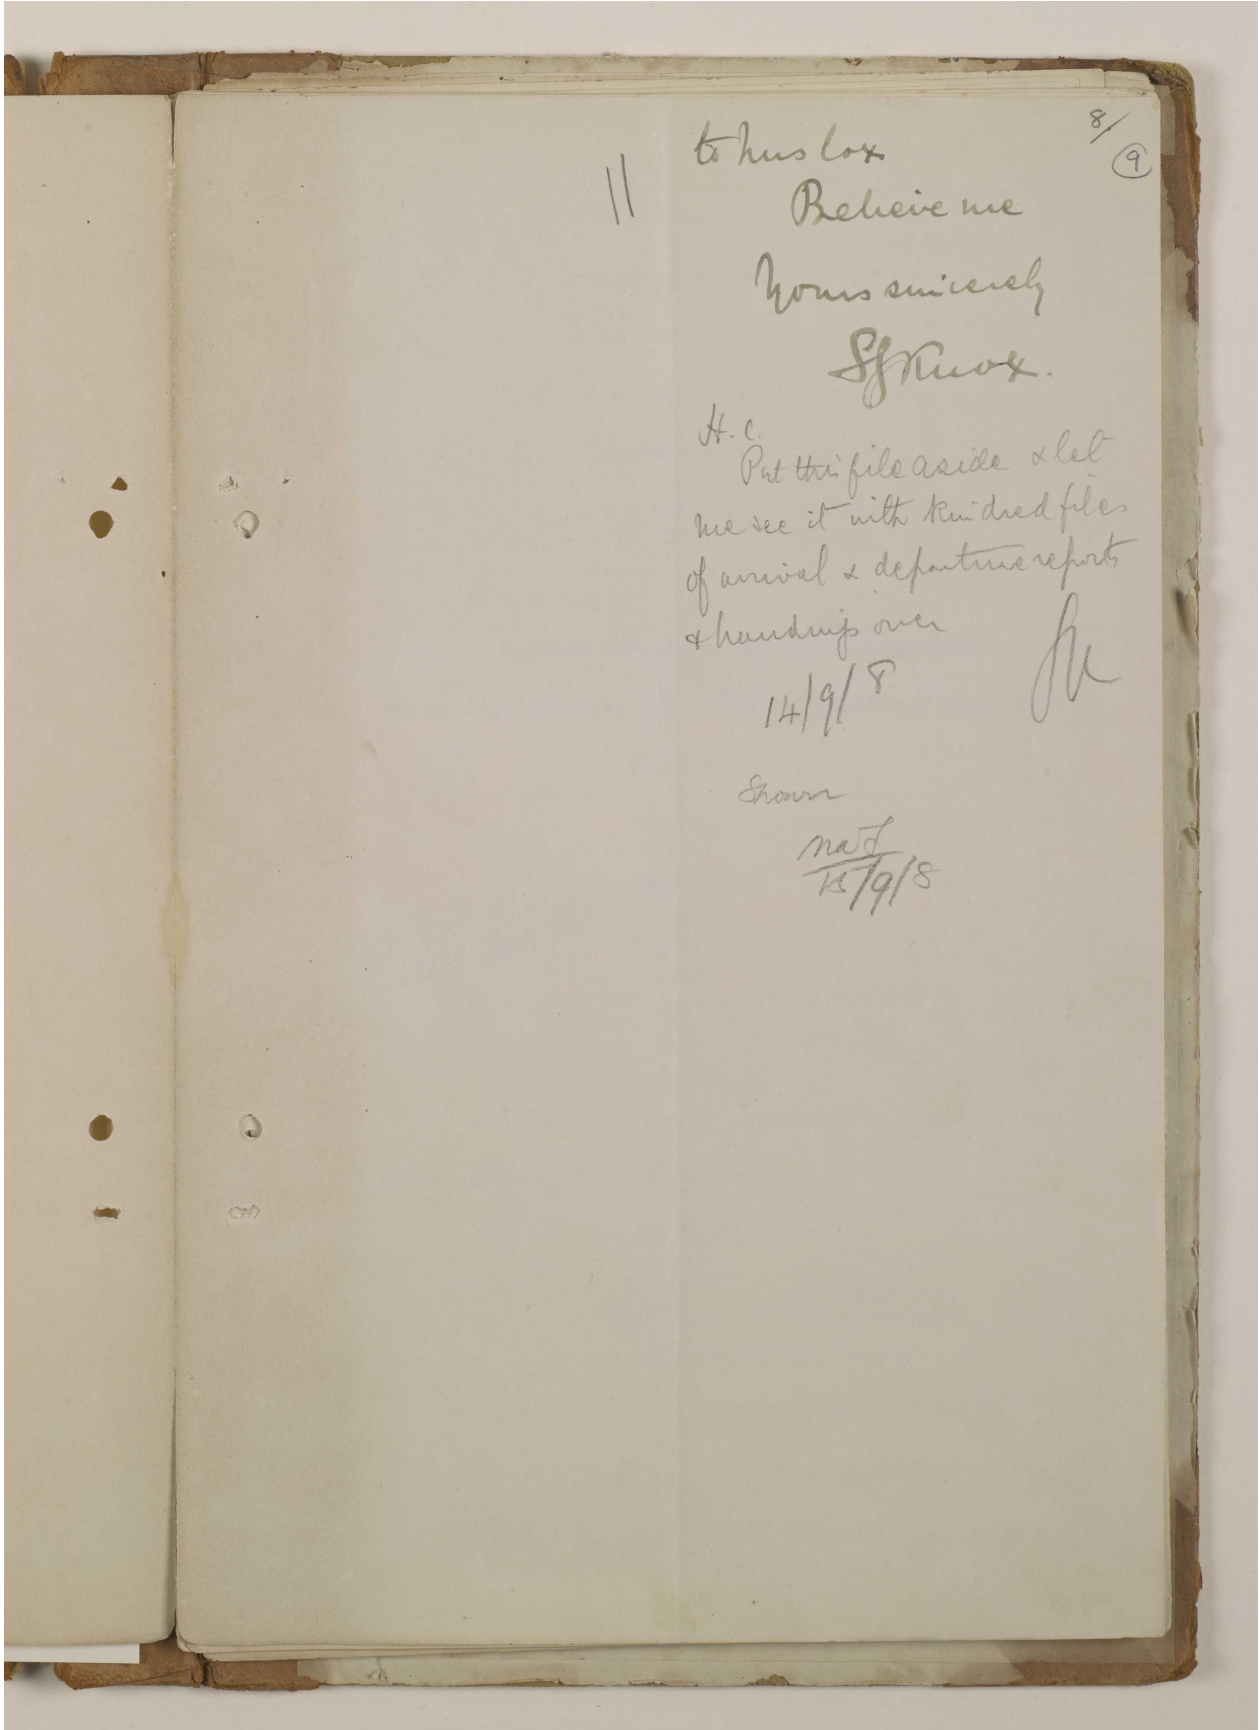 8/
9
to Mrs Cox
Believe me
Yours sincerely
SGKnox.
H. C.
Put this file aside & let
me see it with kindred files
of arrival & departure reports
& handings over
14/9/8
Shown
15/9/8